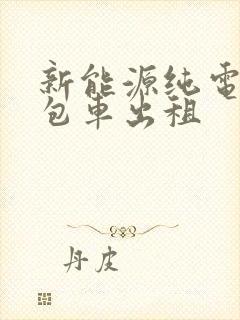 新能源纯電
包車出租
丹皮